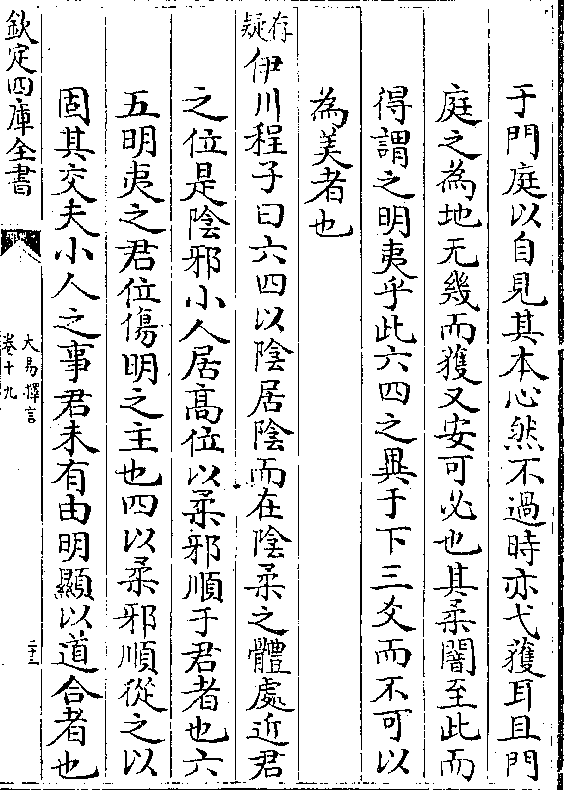 于門庭以自見其本心然不過時亦弋獲耳且門
庭之為地无幾而獲又安可必也其柔闇至此而
得謂之明夷乎此六四之異于下三爻而不可以
為美者也
存疑伊川程子曰六四以陰居陰而在陰柔之體處近君
之位是陰邪小人居髙位以柔邪順于君者也六
五明夷之君位傷明之主也四以柔邪順從之以
固其交夫小人之事君未有由明顯以道合者也
欽定四庫全書
大易擇言
卷十九